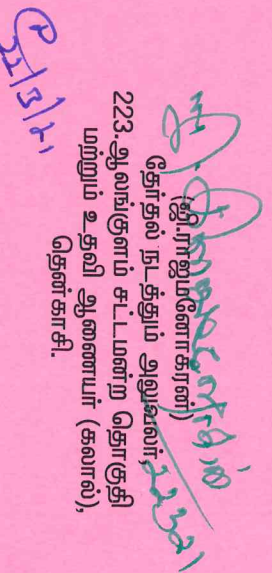 (ஜி.ராஜமனோகரன்)
தேர்தல் நடத்தும் அலுவலர்,
223.ஆலங்குளம் சட்டமன்ற தொகுதி
மற்றும் உதவி ஆணையர் (கலால்),
தென்காசி.
22/3/21